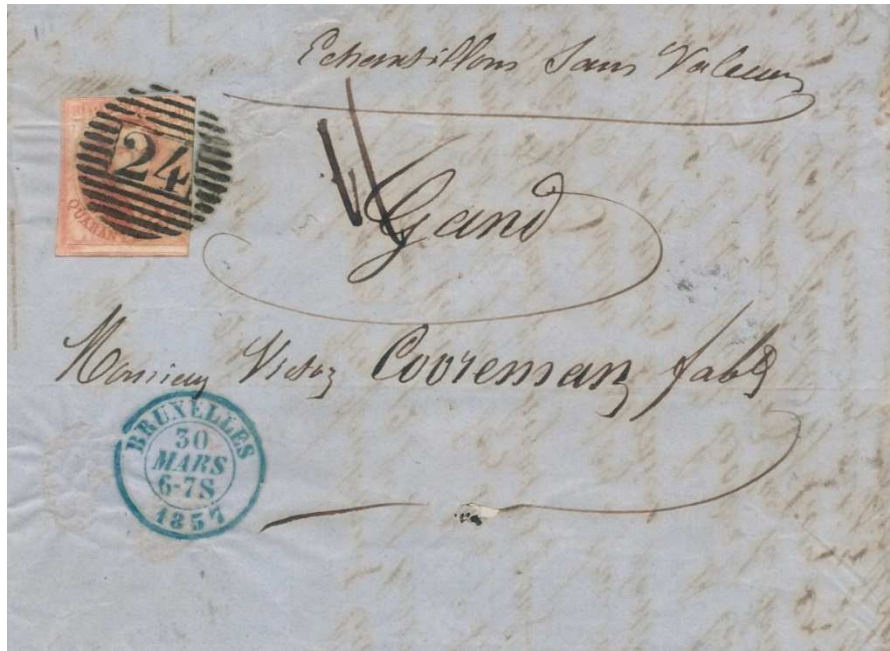 Echantillons Sans Valeur
24
QUARAN
Gand
Monsieur Victor Cooreman fabt
BRUXELLES
30
MARS
6-7S
1857